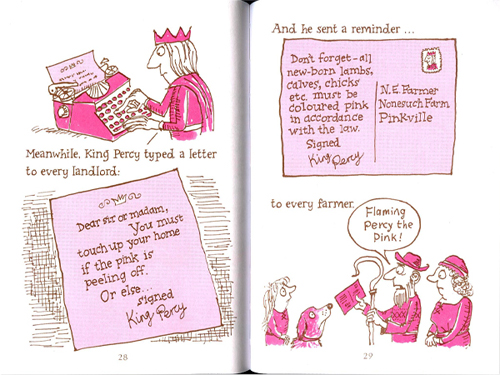 Meanwhile, King Percy typed a letter
to every landlord:
Dear sir or madam,
You must
touch up your home
if the pink is
peeling off.
Or else...
signed
King Percy
28
And he sent a reminder ...
Don't forget-all
new-born lambs,
calves, chicks
etc. must be
coloured pink
in accordance
with the law.
Signed
King Percy
N.E. Farmer
Nonesuch Farm
Pinkville
to every farmer.
Flaming
Percy the
Pink!
29